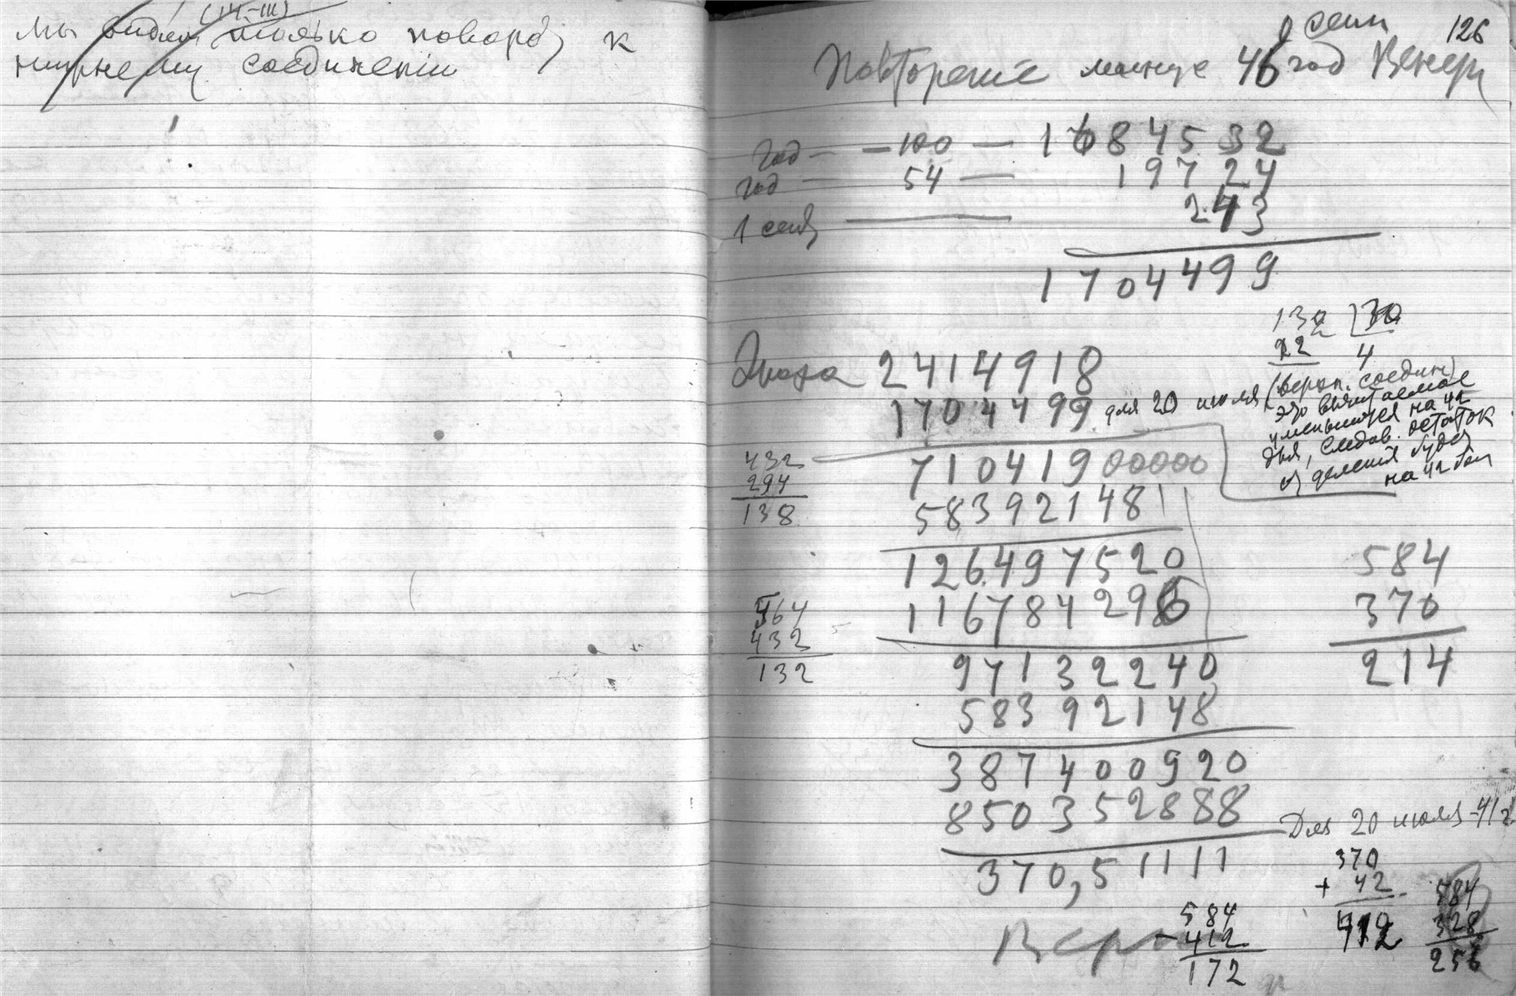 (14-III)
Мы видим только поворот к
нижнему соединению
126
1 сент
Повторение минус 46 год Венеры
год — 100 — 1684532
год — 54 — 19724
1 сент — 243
1704499
132 30
12 4
Эпоха 2414918
1704499 для 20 июля (верхн. соедин)
это вычитаемое
уменьшится на 42
дня, следов. остаток
от деления будет
на 42 бол
71041900000
432
294
138
583921481
126497520
116784296
564
432
132
971322240
58392148
584
370
214
387400920
850352888
370,51111
Для 20 июля - 412
370
+ 42
412
584
328
256
Верно
584
- 412
172